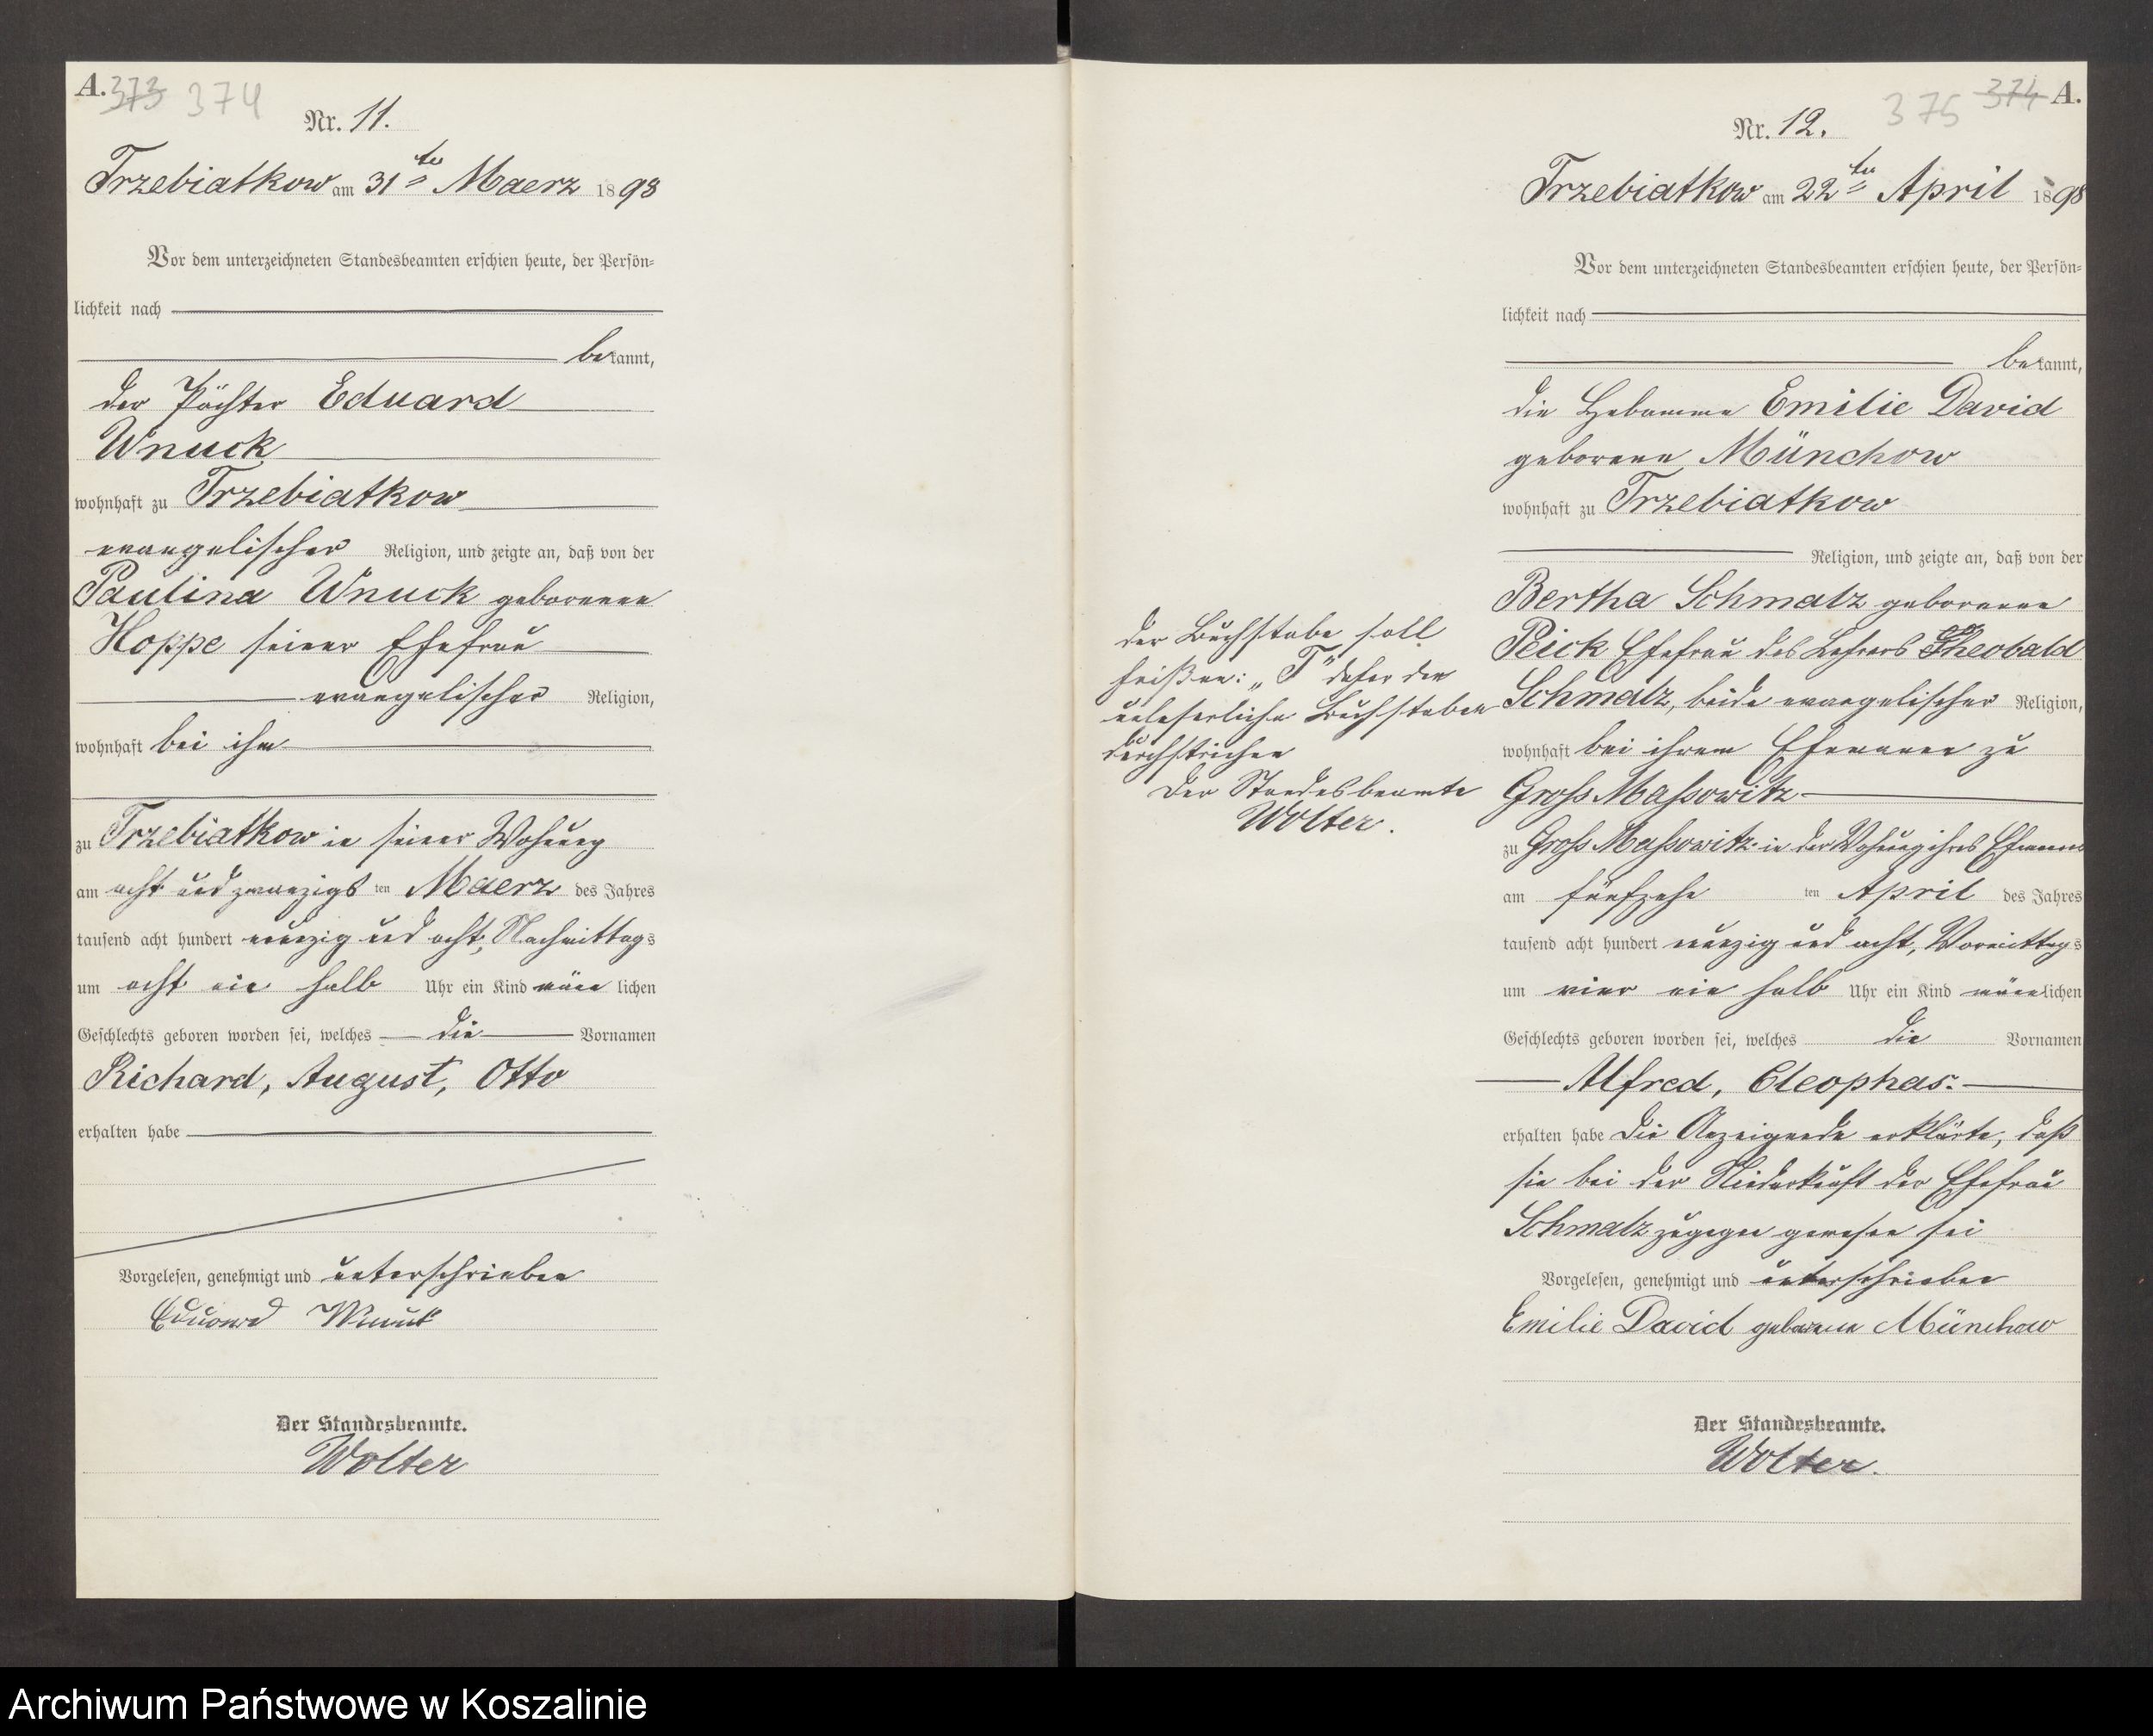 A. 373 374
Nr. 11.
Trzebiatkow am 31ten Maerz 1898
Vor dem unterzeichneten Standesbeamten erschien heute, der Persön-
lichkeit nach
bekannt,
der Pächter Eduard
Wnuck
wohnhaft zu Trzebiatkow
evangelischer Religion, und zeigte an, daß von der
Paulina Wnuck geborenen
Hoppe seiner Ehefrau
evangelischer Religion,
wohnhaft bei ihm
zu Trzebiatkow in seiner Wohnung
am acht und zwanzigs ten Maerz des Jahres
tausend acht hundert neunzig und acht, Nachmittags
um acht ein halb Uhr ein Kind männ lichen
Geschlechts geboren worden sei, welches die Vornamen
Richard, August, Otto
erhalten habe
Vorgelesen, genehmigt und unterschrieben
Eduard Wnuck
Der Standesbeamte.
Wolter
375 374 A.
Nr. 12.
Trzebiatkow am 22ten April 1898
Vor dem unterzeichneten Standesbeamten erschien heute, der Persön-
lichkeit nach
bekannt,
die Hebamme Emilie David
geborene Münchow
wohnhaft zu Trzebiatkow
Religion, und zeigte an, daß von der
Bertha Schmalz geborenen
Peick Ehefrau des Lehrers Theobald
Schmalz, beide evangelischer Religion,
wohnhaft bei ihrem Ehemann zu
Gross Massowitz
zu Gross Massowitz in der Wohnung ihres Ehemanns
am fünfzehn ten April des Jahres
tausend acht hundert neunzig und acht, Vormittags
um vier ein halb Uhr ein Kind männlichen
Geschlechts geboren worden sei, welches die Vornamen
Alfred, Cleophas.
erhalten habe Die Anzeigende erklärte, daß
sie bei der Niederkunft der Ehefrau
Schmalz zugegen gewesen sei
Vorgelesen, genehmigt und unterschrieben
Emilie David geborene Münchow
Der Standesbeamte.
Wolter.
der Buchstabe soll
heißen: „T" daher den
unleserlichen Buchstaben
durchstrichen
Der Standesbeamte
Wolter.
Archiwum Państwowe w Koszalinie